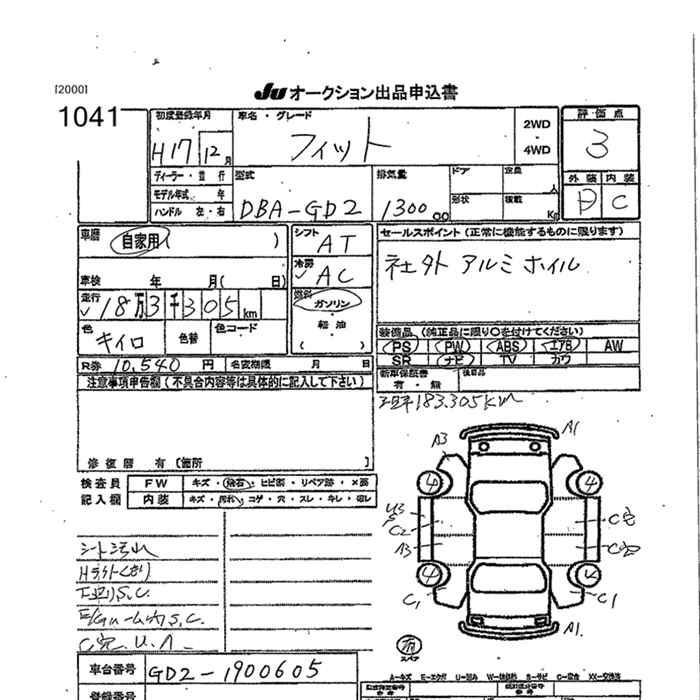 [2000]
JU オークション出品申込書
1041
初度登録年月 車名・グレード 2WD・4WD 評価点
H17 12月 フィット 3
ディーラー・並行 型式 排気量 ドア 定員 人 外装 内装
モデル年式 年 形状 積載 Kg
ハンドル 左・右 DBA-GD2 1300cc D C
車歴 自家用( ) シフト AT セールスポイント(正常に機能するものに限ります)
冷房 AC 社外アルミホイル
車検 年 月( 日)
走行 18万3千305km 燃料 ガソリン
軽油
( )
色 キイロ 色替 色コード 装備品(純正品に限り○を付けてください)
PS PW ABS エアB AW
SR ナビ TV カワ
R券 10,540円 名変期限 月 日 新車保証書 後日品
有・無
注意事項申告欄(不具合内容等は具体的に記入して下さい)
183,305km
修復歴 有(箇所
検査員 FW キズ・飛石・ヒビ割・リペア跡・×要
記入欄 内装 キズ・汚れ・コゲ・穴・スレ・キレ・
A3 A1
4 4
U3 C
C2
A3 C
4
C1 C1
A1
シート汚れ
Hライトくもり
S.C.
E/Gルーム内S.C.
C穴 U.A
スペア
A-キズ E-エクボ U-凹み
車台番号 GD2-1900605
登録番号